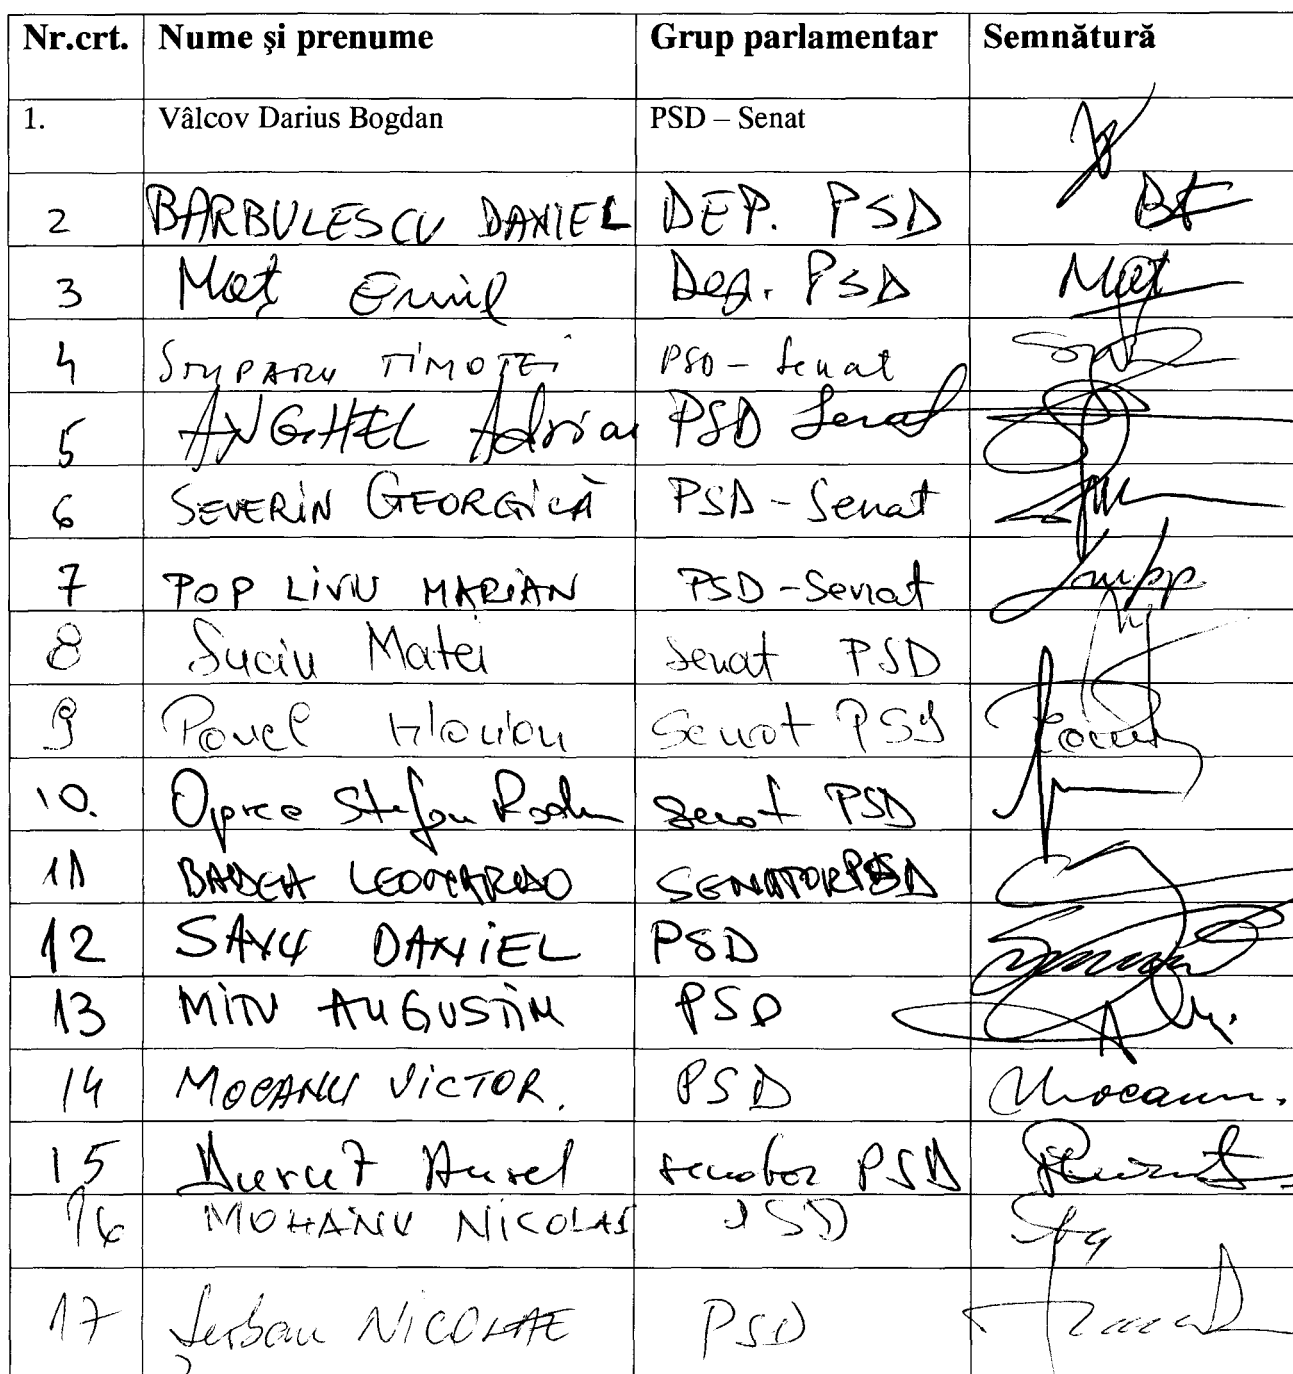 Nr.crt. Nume şi prenume Grup parlamentar Semnătură
1. Vâlcov Darius Bogdan PSD – Senat
2 BARBULESCU DANIEL DEP. PSD
3 Moţ Emil Dep. PSD Moţ
4 STUPARU TIMOTEI PSD – Senat
5 ANGHEL Adrian PSD Senat
6 SEVERIN GEORGICĂ PSD - Senat
7 POP LIVIU MARIAN PSD - Senat
8 Suciu Matei Senat PSD
9 Pavel Senat PSD
10. Oprea Stefan Radu Senat PSD
11 BADEA LEONARDO SENATOR PSD
12 SAVU DANIEL PSD
13 MITU AUGUSTIN PSD
14 MOCANU VICTOR. PSD Mocanu.
15 Duruț Aurel senator PSD
16 MOHANU NICOLAE PSD
17 Şerban NICOLAE PSD